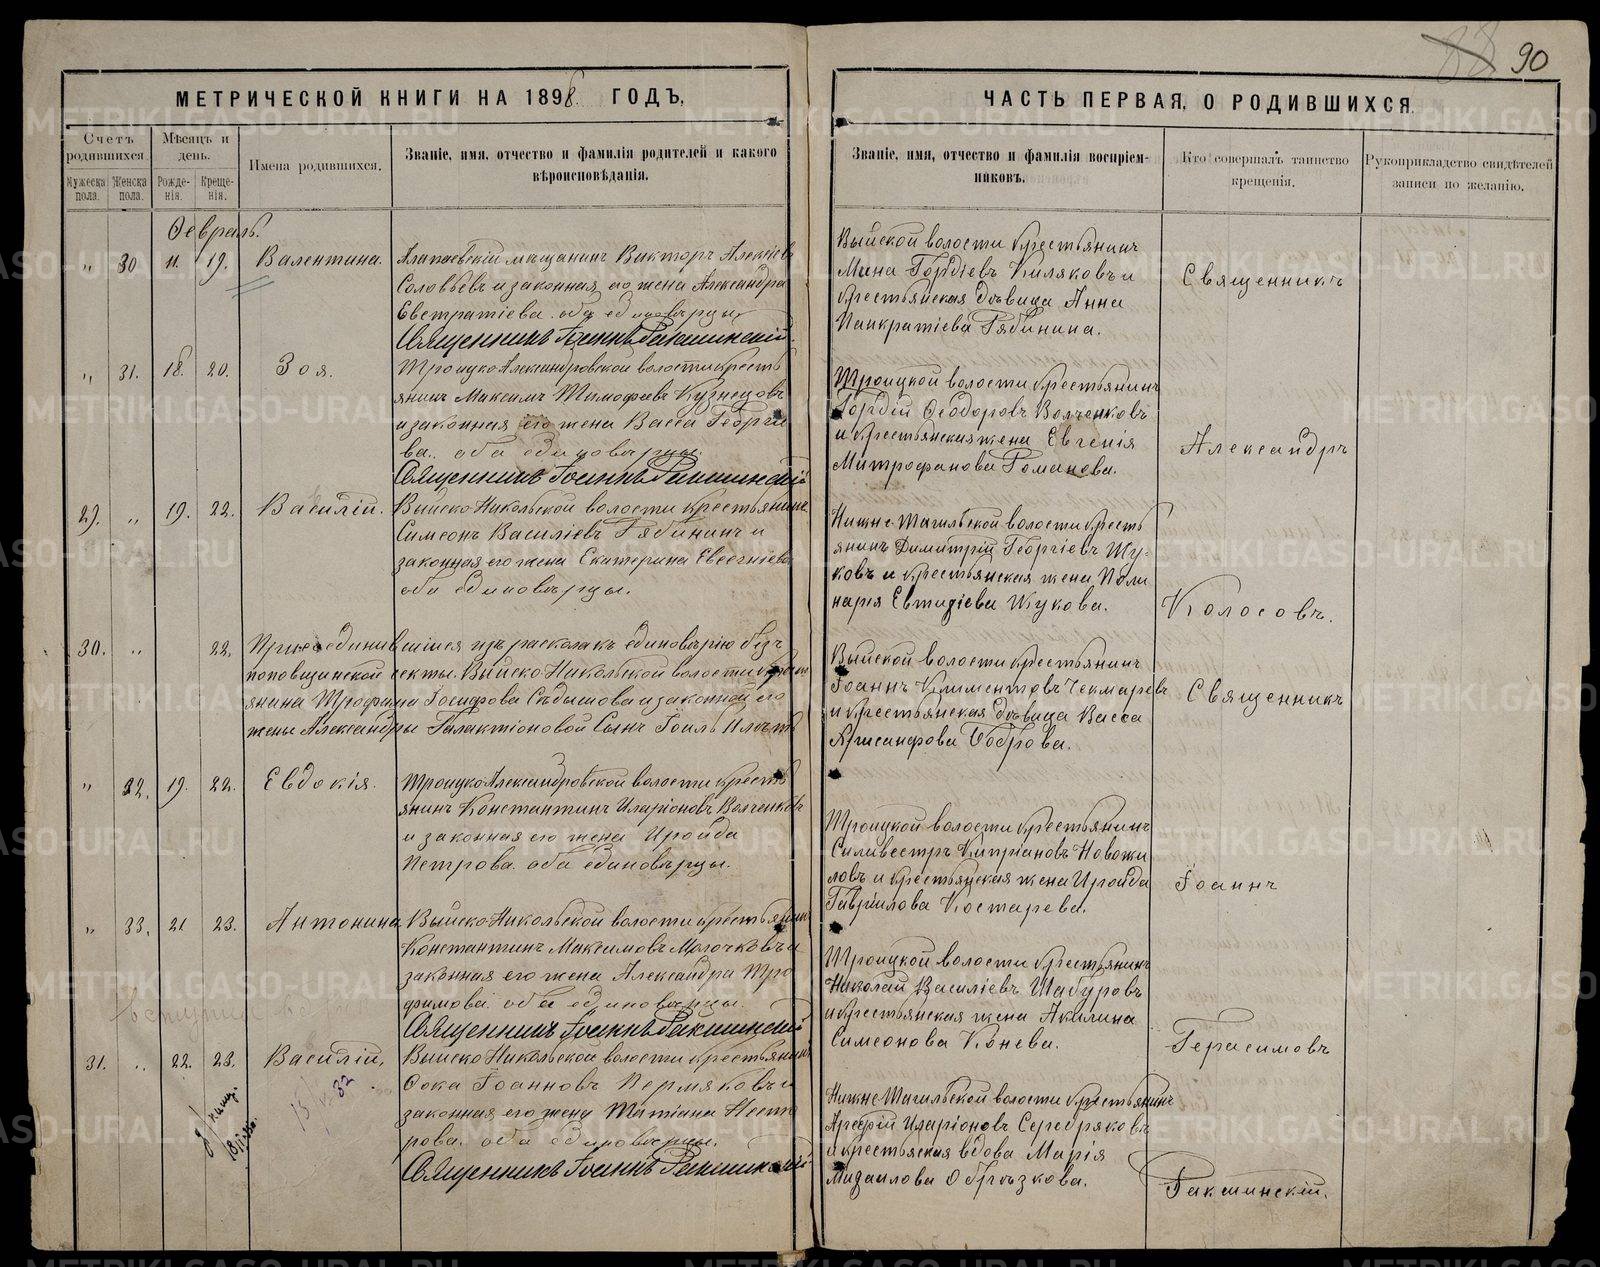 90
МЕТРИЧЕСКОЙ КНИГИ НА 1898 ГОДЪ,
Счетъ родившихся.
Мѣсяцъ и день.
Имена родившихся.
Званіе, имя, отчество и фамилія родителей и какого вѣроисповѣданія.
Мужеска пола.
Женска пола.
Рожде-нія.
Креще-нія.
Февраль.
„ 30 11. 19. Валентина.
Алапаевскій мѣщанинъ Викторъ Алексіевъ
Соловьевъ и законная его жена Александра
Евстратіева. оба единовѣрцы
Священникъ Іоаннъ Ракшинскій.
„ 31. 18. 20. Зоя.
Троицко Александровской волости кресть
янинъ Максимъ Тимофеевъ Кузнецовъ
и законная его жена Васса Георгіе
ва. оба единовѣрцы.
Священникъ Іоаннъ Ракшинскій
29. „ 19. 22. Василій.
Выйско-Никольской волости крестьянинъ
Симеонъ Василіевъ Рябининъ и
законная его жена Екатерина Евсегніева
оба единовѣрцы.
30. „ 22. Присоединившійся изъ раскола къ единовѣрію без
поповщинской секты. Выйско-Никольской волости крест
янина Трофима Іосифова Сѣдышова и законной его
жены Александры Галактіоновой Сынъ Іоиль
„ 32. 19. 22. Евдокія.
Троицко Александровской волости кресть
янинъ Константинъ Иларіоновъ Волченковъ
и законная его жена Ироида
Петрова. оба единовѣрцы.
„ 33. 21 23. Антонина
Выйско-Никольской волости крестьянинъ
Константинъ Максимовъ Молочковъ и
законная его жена Александра Тро
фимова. оба единовѣрцы.
Священникъ Іоаннъ Ракшинскій
31. „ 22. 23. Василій,
Выйско-Никольской волости крестьянинъ
Фока Іоанновъ Пермяковъ и
законная его жена Татіана Несте
рова. оба единовѣрцы.
Священникъ Іоаннъ Ракшинскій
ЧАСТЬ ПЕРВАЯ, О РОДИВШИХСЯ.
Званіе, имя, отчество и фамилія воспріем-никовъ.
Кто совершалъ таинство крещенія.
Рукоприкладство свидѣтелей записи по желанію.
Выйской волости крестьянинъ
Мина Гордіевъ Киляковъ и
крестьянская дѣвица Анна
Панкратіева Рябинина.
Троицкой волости крестьянинъ
Гордій Феодоровъ Волченковъ
и крестьянская жена Евгенія
Митрофанова Романова.
Нижне-Тагильской волости кресть
янинъ Димитрій Георгіевъ Жу-
ковъ и крестьянская жена Поли
нарія Евтихіева Жукова.
Выйской волости крестьянинъ
Іоаннъ Климентовъ Чекмаревъ
и крестьянская дѣвица Васса
Хрисанфова Боброва.
Троицкой волости крестьянинъ
Силивестръ Кипріановъ Новожи
ловъ и крестьянская жена Ироида
Гавріилова Костарева.
Троицкой волости крестьянинъ
Николай Василіевъ Шабуровъ
и крестьянская жена Акилина
Симеонова Конева.
Нижне-Тагильской волости крестьянинъ
Арефій Иларіоновъ Серебряковъ
и крестьянская вдова Марія
Михаилова Образкова.
Священникъ
Александръ
Колосовъ.
Священникъ
Іоаннъ
Герасимовъ
Ракшинскій.
METRIKI.GASO-URAL.RU